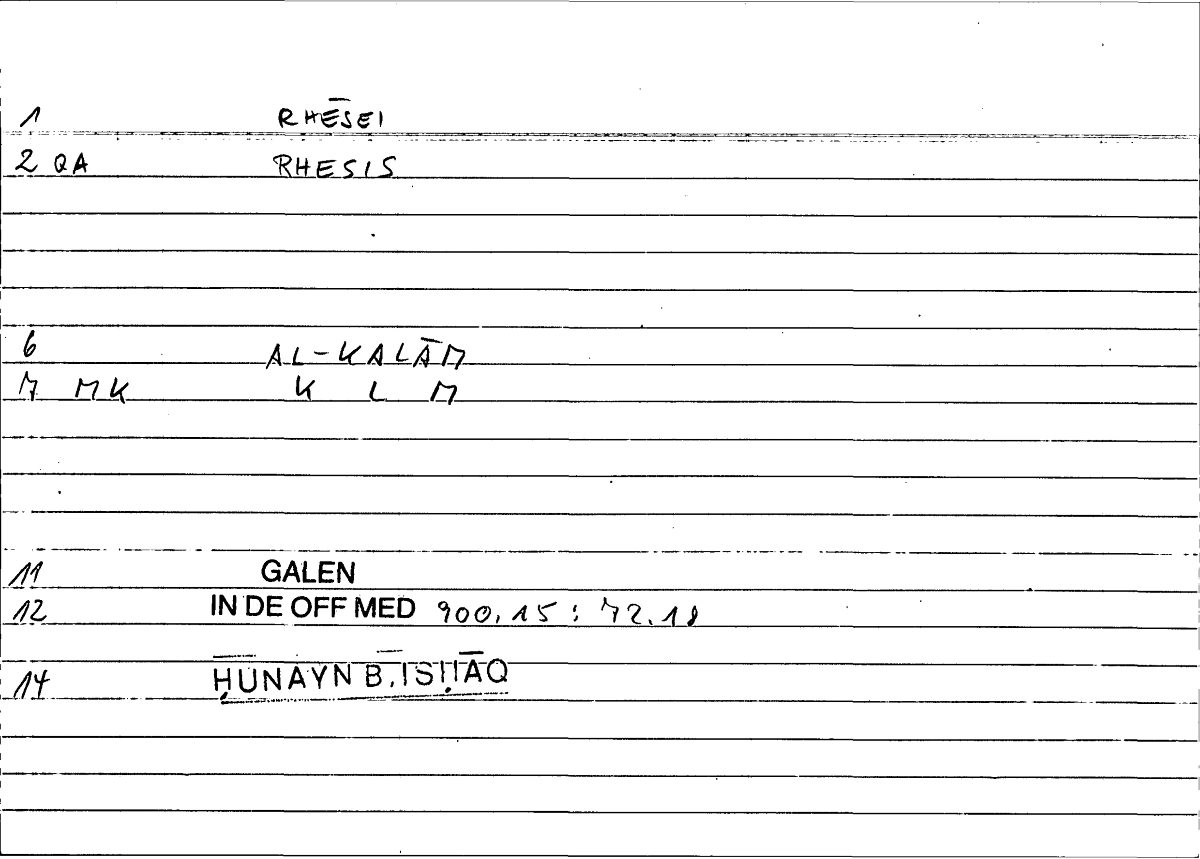 1 RHĒSEI
2 QA RHESIS
6 AL-KALĀM
7 MK K L M
11 GALEN
12 IN DE OFF MED 900,15 : 72.18
14 ḤUNAYN B. ISḤĀQ